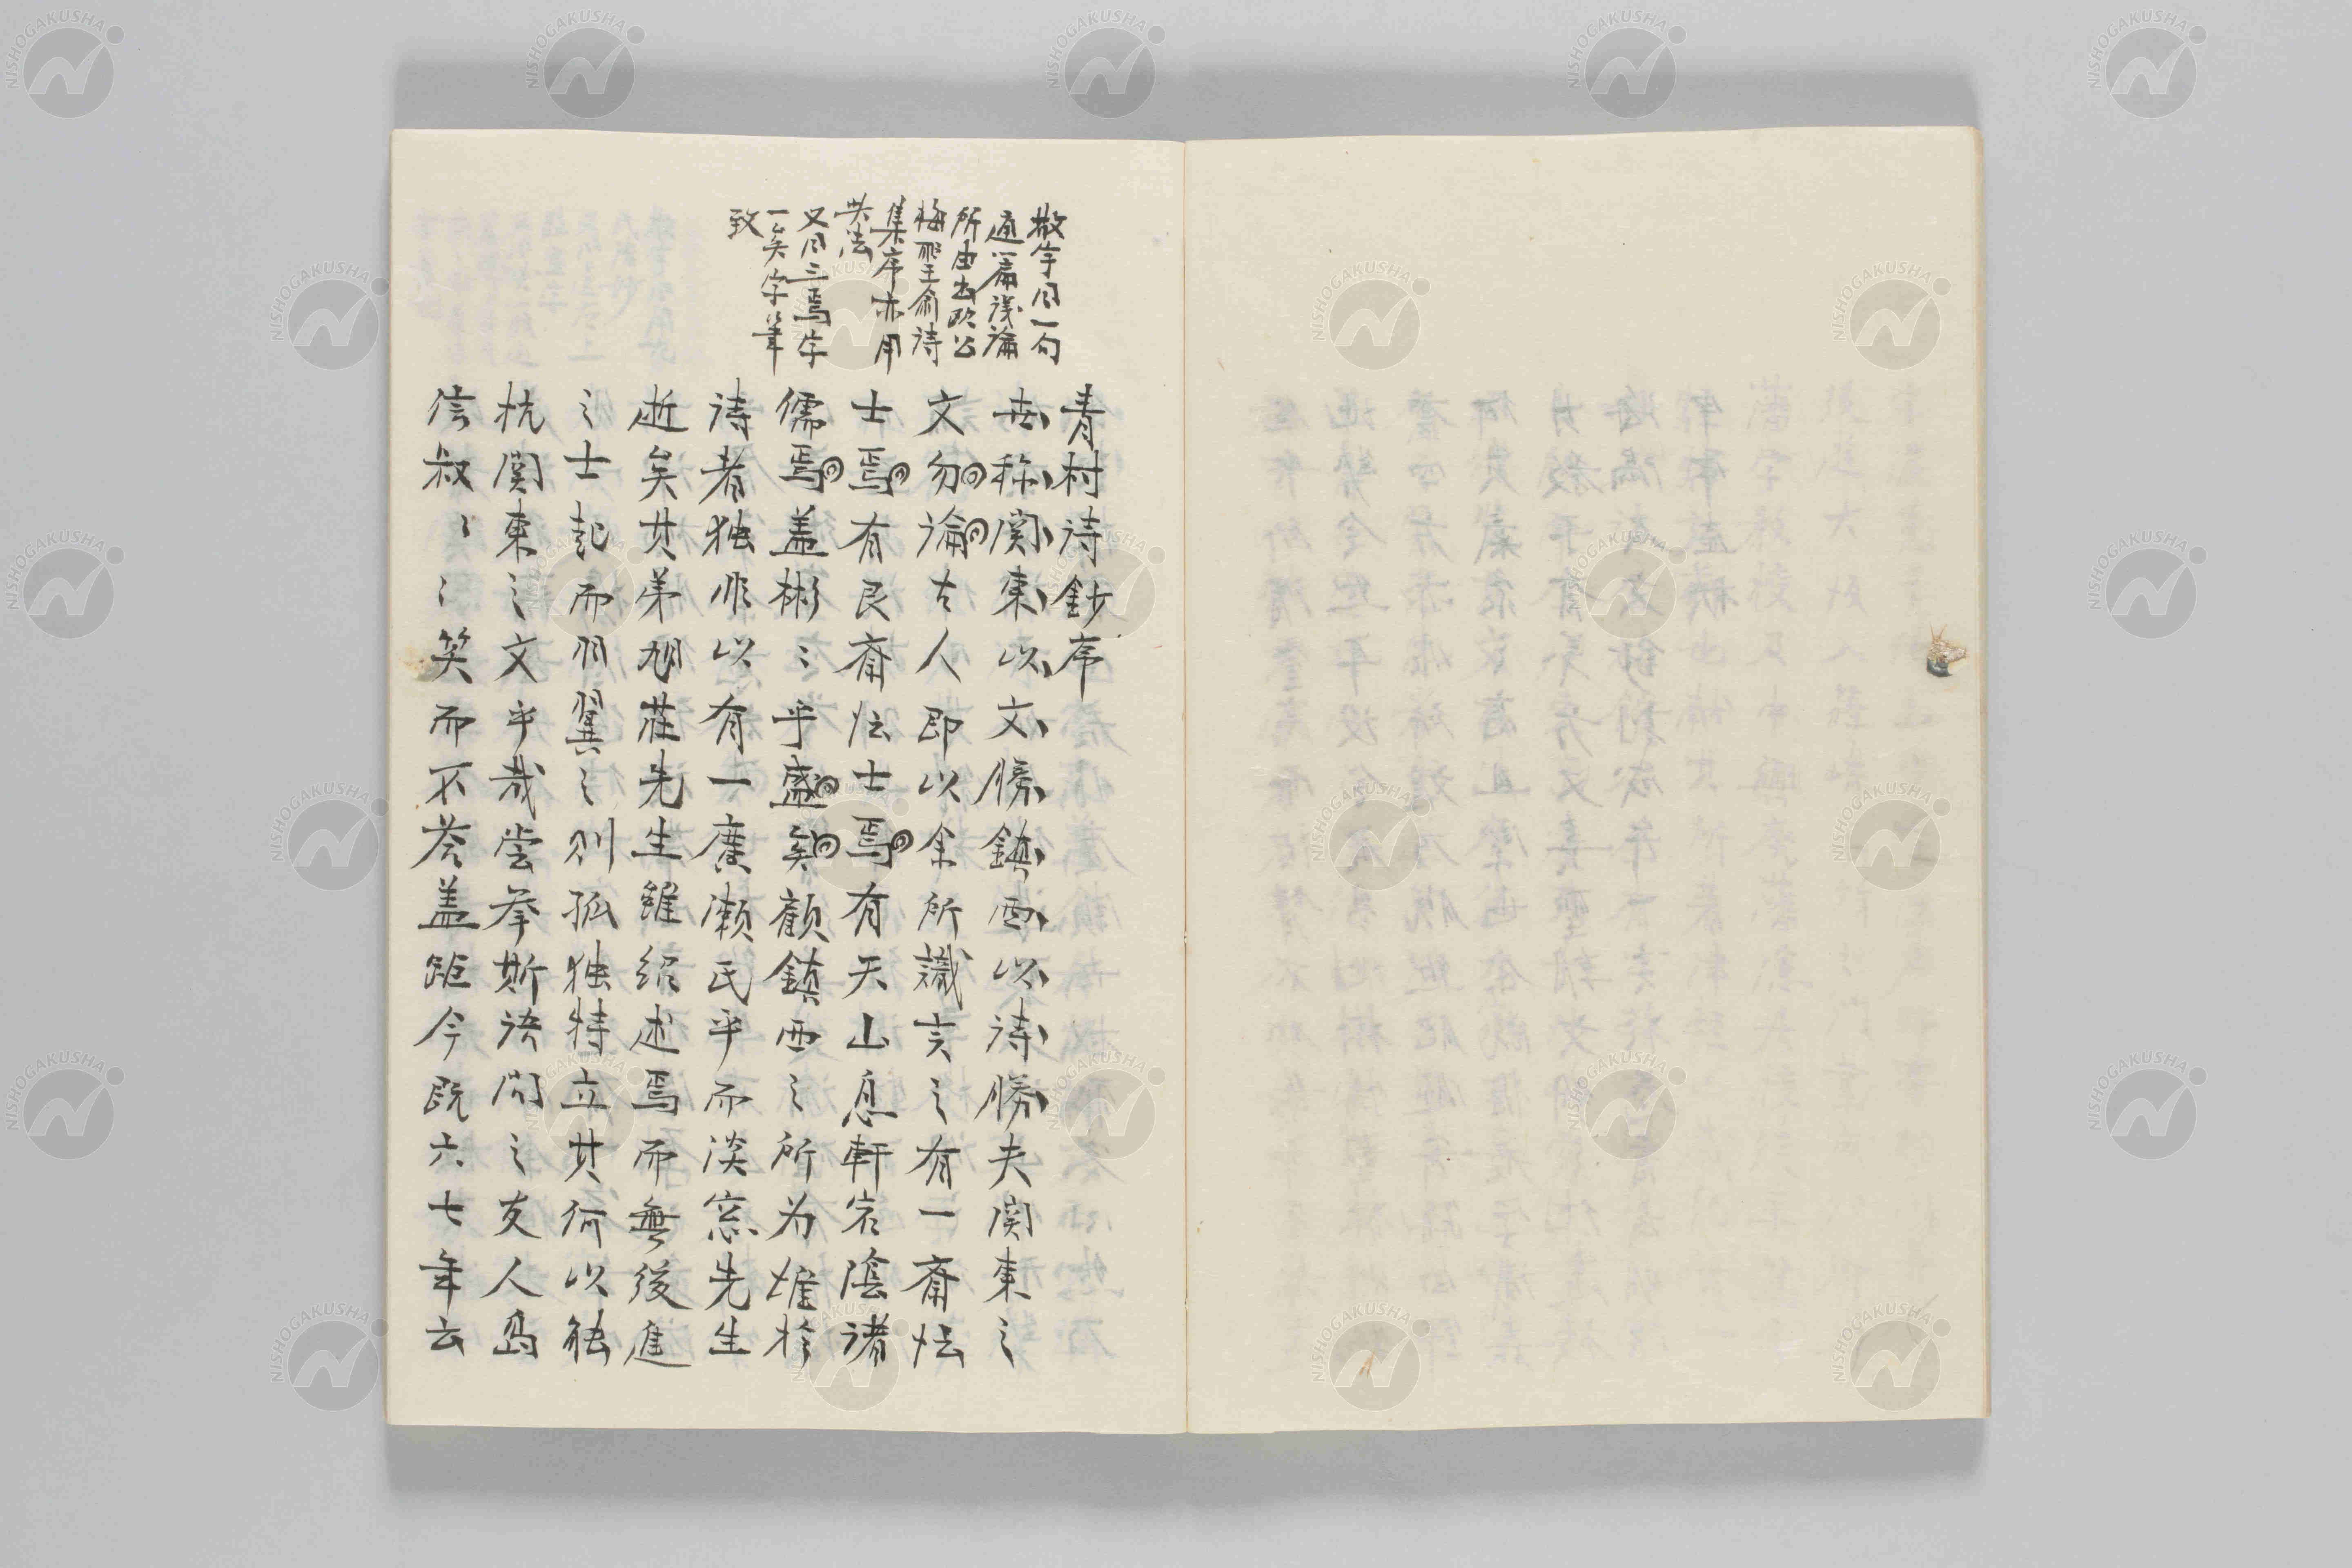 敬宇曰一句
通篇議論
所由出欧公
梅聖俞詩
集序亦用
此法
又曰三焉字
一矣字筆
致
青村詩鈔序
世称関東以文勝鎮西以詩勝夫関東之
文勿論古人即以余所識言之有一斎佐
士焉有艮斎佐士焉有天山息軒宕陰諸
儒焉盖彬〻乎盛矣顧鎮西之所为雄於
詩者独非以有一廣瀬氏乎而淡窓先生
逝矣其弟旭荘先生雖紹述焉而無後進
之士起而羽翼之则孤独特立其何以能
抗関東之文乎哉嘗挙斯語問之友人島
信叔〻〻笑而不荅盖距今既六七年云
NISHOGAKUSHA